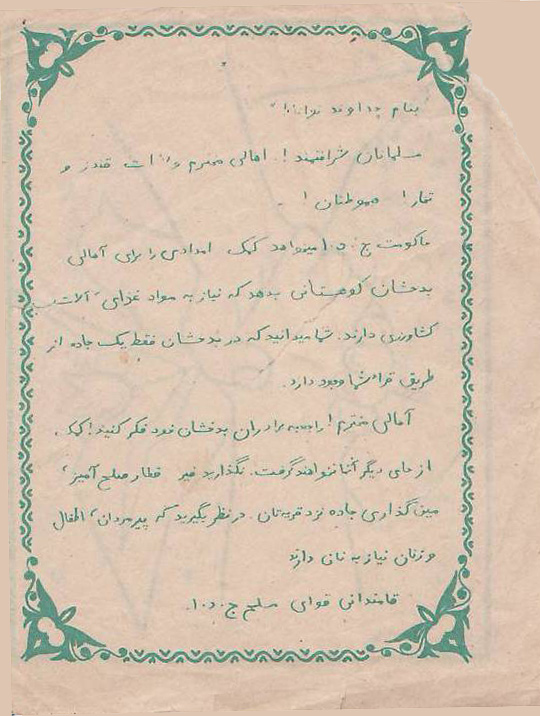 بنام خداوند توانا!
مسلمانان شرافتمند! اهالی محترم ولایت قندز و
تخار! هموطنان!
حاکومت ج.د.ا میخواهد کمک امدادی را برای آهالی
بدخشان کوهستانی بدهد که نیاز به مواد غذای، آلات
کشاورزی دارند. شما میدانید که در بدخشان فقط یک جاده از
طریق قراء شما وجود دارد.
آهالی محترم! راجعبه برادران بدخشان خود فکر کنید! کمک
از جای دیگر آنها نخواهند گرفت. نگذارید غیر قطار صلح آمیز،
مین گذاری جاده نزد قریه‌تان. در نظر بگیرید که پیرمردان، اطفال
و زنان نیاز به نان دارند
قامندانی قوای مسلح ج.د.ا.